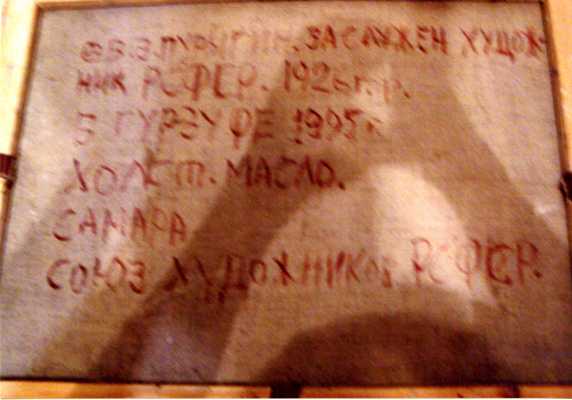 ЗАСЛУЖЕН ХУДОЖ-
НИК РСФСР. 1926 г.р.
В ГУРЗУФЕ 1995г
ХОЛСТ. МАСЛО.
САМАРА
СОЮЗ ХУДОЖНИКОВ РСФСР.